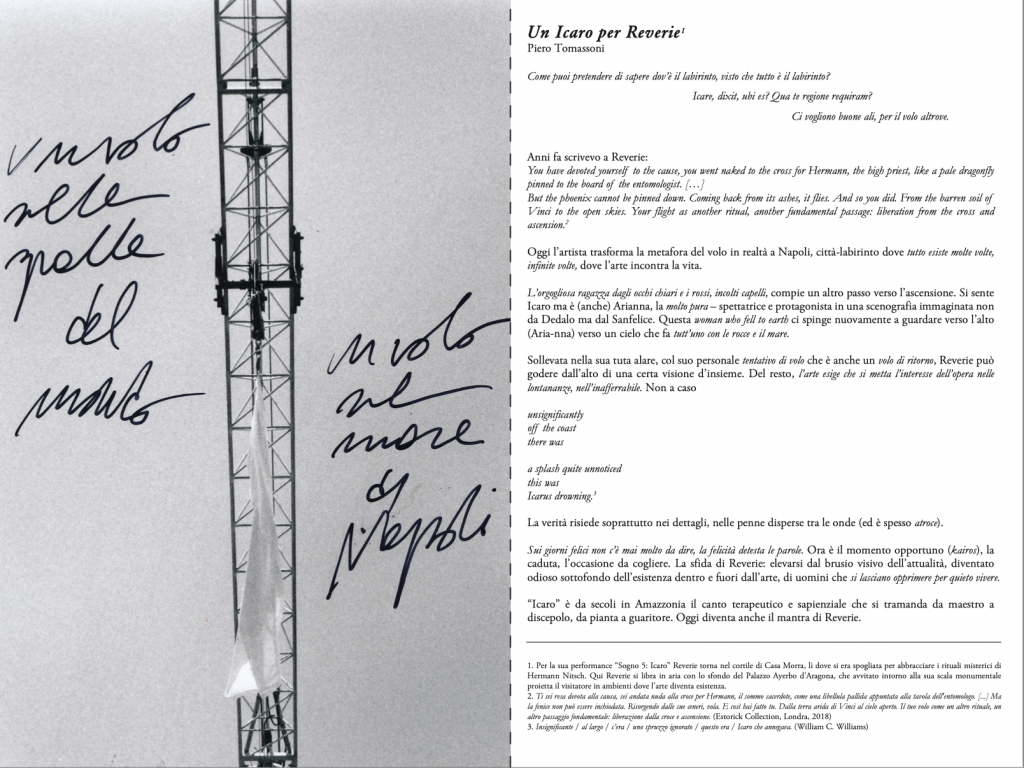 un volo
nelle
spalle
del
mondo
un volo
nel
mare
di
Napoli
Un Icaro per Reverie¹
Piero Tomassoni
Come puoi pretendere di sapere dov'è il labirinto, visto che tutto è il labirinto?
Icare, dixit, ubi es? Qua te regione requiram?
Ci vogliono buone ali, per il volo altrove.
Anni fa scrivevo a Reverie:
You have devoted yourself to the cause, you went naked to the cross for Hermann, the high priest, like a pale dragonfly
pinned to the board of the entomologist. […]
But the phoenix cannot be pinned down. Coming back from its ashes, it flies. And so you did. From the barren soil of
Vinci to the open skies. Your flight as another ritual, another fundamental passage: liberation from the cross and
ascension.²
Oggi l'artista trasforma la metafora del volo in realtà a Napoli, città-labirinto dove tutto esiste molte volte,
infinite volte, dove l'arte incontra la vita.
L'orgogliosa ragazza dagli occhi chiari e i rossi, incolti capelli, compie un altro passo verso l'ascensione. Si sente
Icaro ma è (anche) Arianna, la molto pura – spettatrice e protagonista in una scenografia immaginata non
da Dedalo ma dal Sanfelice. Questa woman who fell to earth ci spinge nuovamente a guardare verso l'alto
(Aria-nna) verso un cielo che fa tutt'uno con le rocce e il mare.
Sollevata nella sua tuta alare, col suo personale tentativo di volo che è anche un volo di ritorno, Reverie può
godere dall'alto di una certa visione d'insieme. Del resto, l'arte esige che si metta l'interesse dell'opera nelle
lontananze, nell'inafferrabile. Non a caso
unsignificantly
off the coast
there was
a splash quite unnoticed
this was
Icarus drowning.³
La verità risiede soprattutto nei dettagli, nelle penne disperse tra le onde (ed è spesso atroce).
Sui giorni felici non c'è mai molto da dire, la felicità detesta le parole. Ora è il momento opportuno (kairos), la
caduta, l'occasione da cogliere. La sfida di Reverie: elevarsi dal brusio visivo dell'attualità, diventato
odioso sottofondo dell'esistenza dentro e fuori dall'arte, di uomini che si lasciano opprimere per quieto vivere.
"Icaro" è da secoli in Amazzonia il canto terapeutico e sapienziale che si tramanda da maestro a
discepolo, da pianta a guaritore. Oggi diventa anche il mantra di Reverie.
1. Per la sua performance "Sogno 5: Icaro" Reverie torna nel cortile di Casa Morra, lì dove si era spogliata per abbracciare i rituali misterici di
Hermann Nitsch. Qui Reverie si libra in aria con lo sfondo del Palazzo Ayerbo d'Aragona, che avvitato intorno alla sua scala monumentale
proietta il visitatore in ambienti dove l'arte diventa esistenza.
2. Ti sei resa devota alla causa, sei andata nuda alla croce per Hermann, il sommo sacerdote, come una libellula pallida appuntata alla tavola dell'entomologo. [...] Ma
la fenice non può essere inchiodata. Risorgendo dalle sue ceneri, vola. E così hai fatto tu. Dalla terra arida di Vinci al cielo aperto. Il tuo volo come un altro rituale, un
altro passaggio fondamentale: liberazione dalla croce e ascensione. (Estorick Collection, Londra, 2018)
3. Insignificante / al largo / c'era / uno spruzzo ignorato / questo era / Icaro che annegava. (William C. Williams)